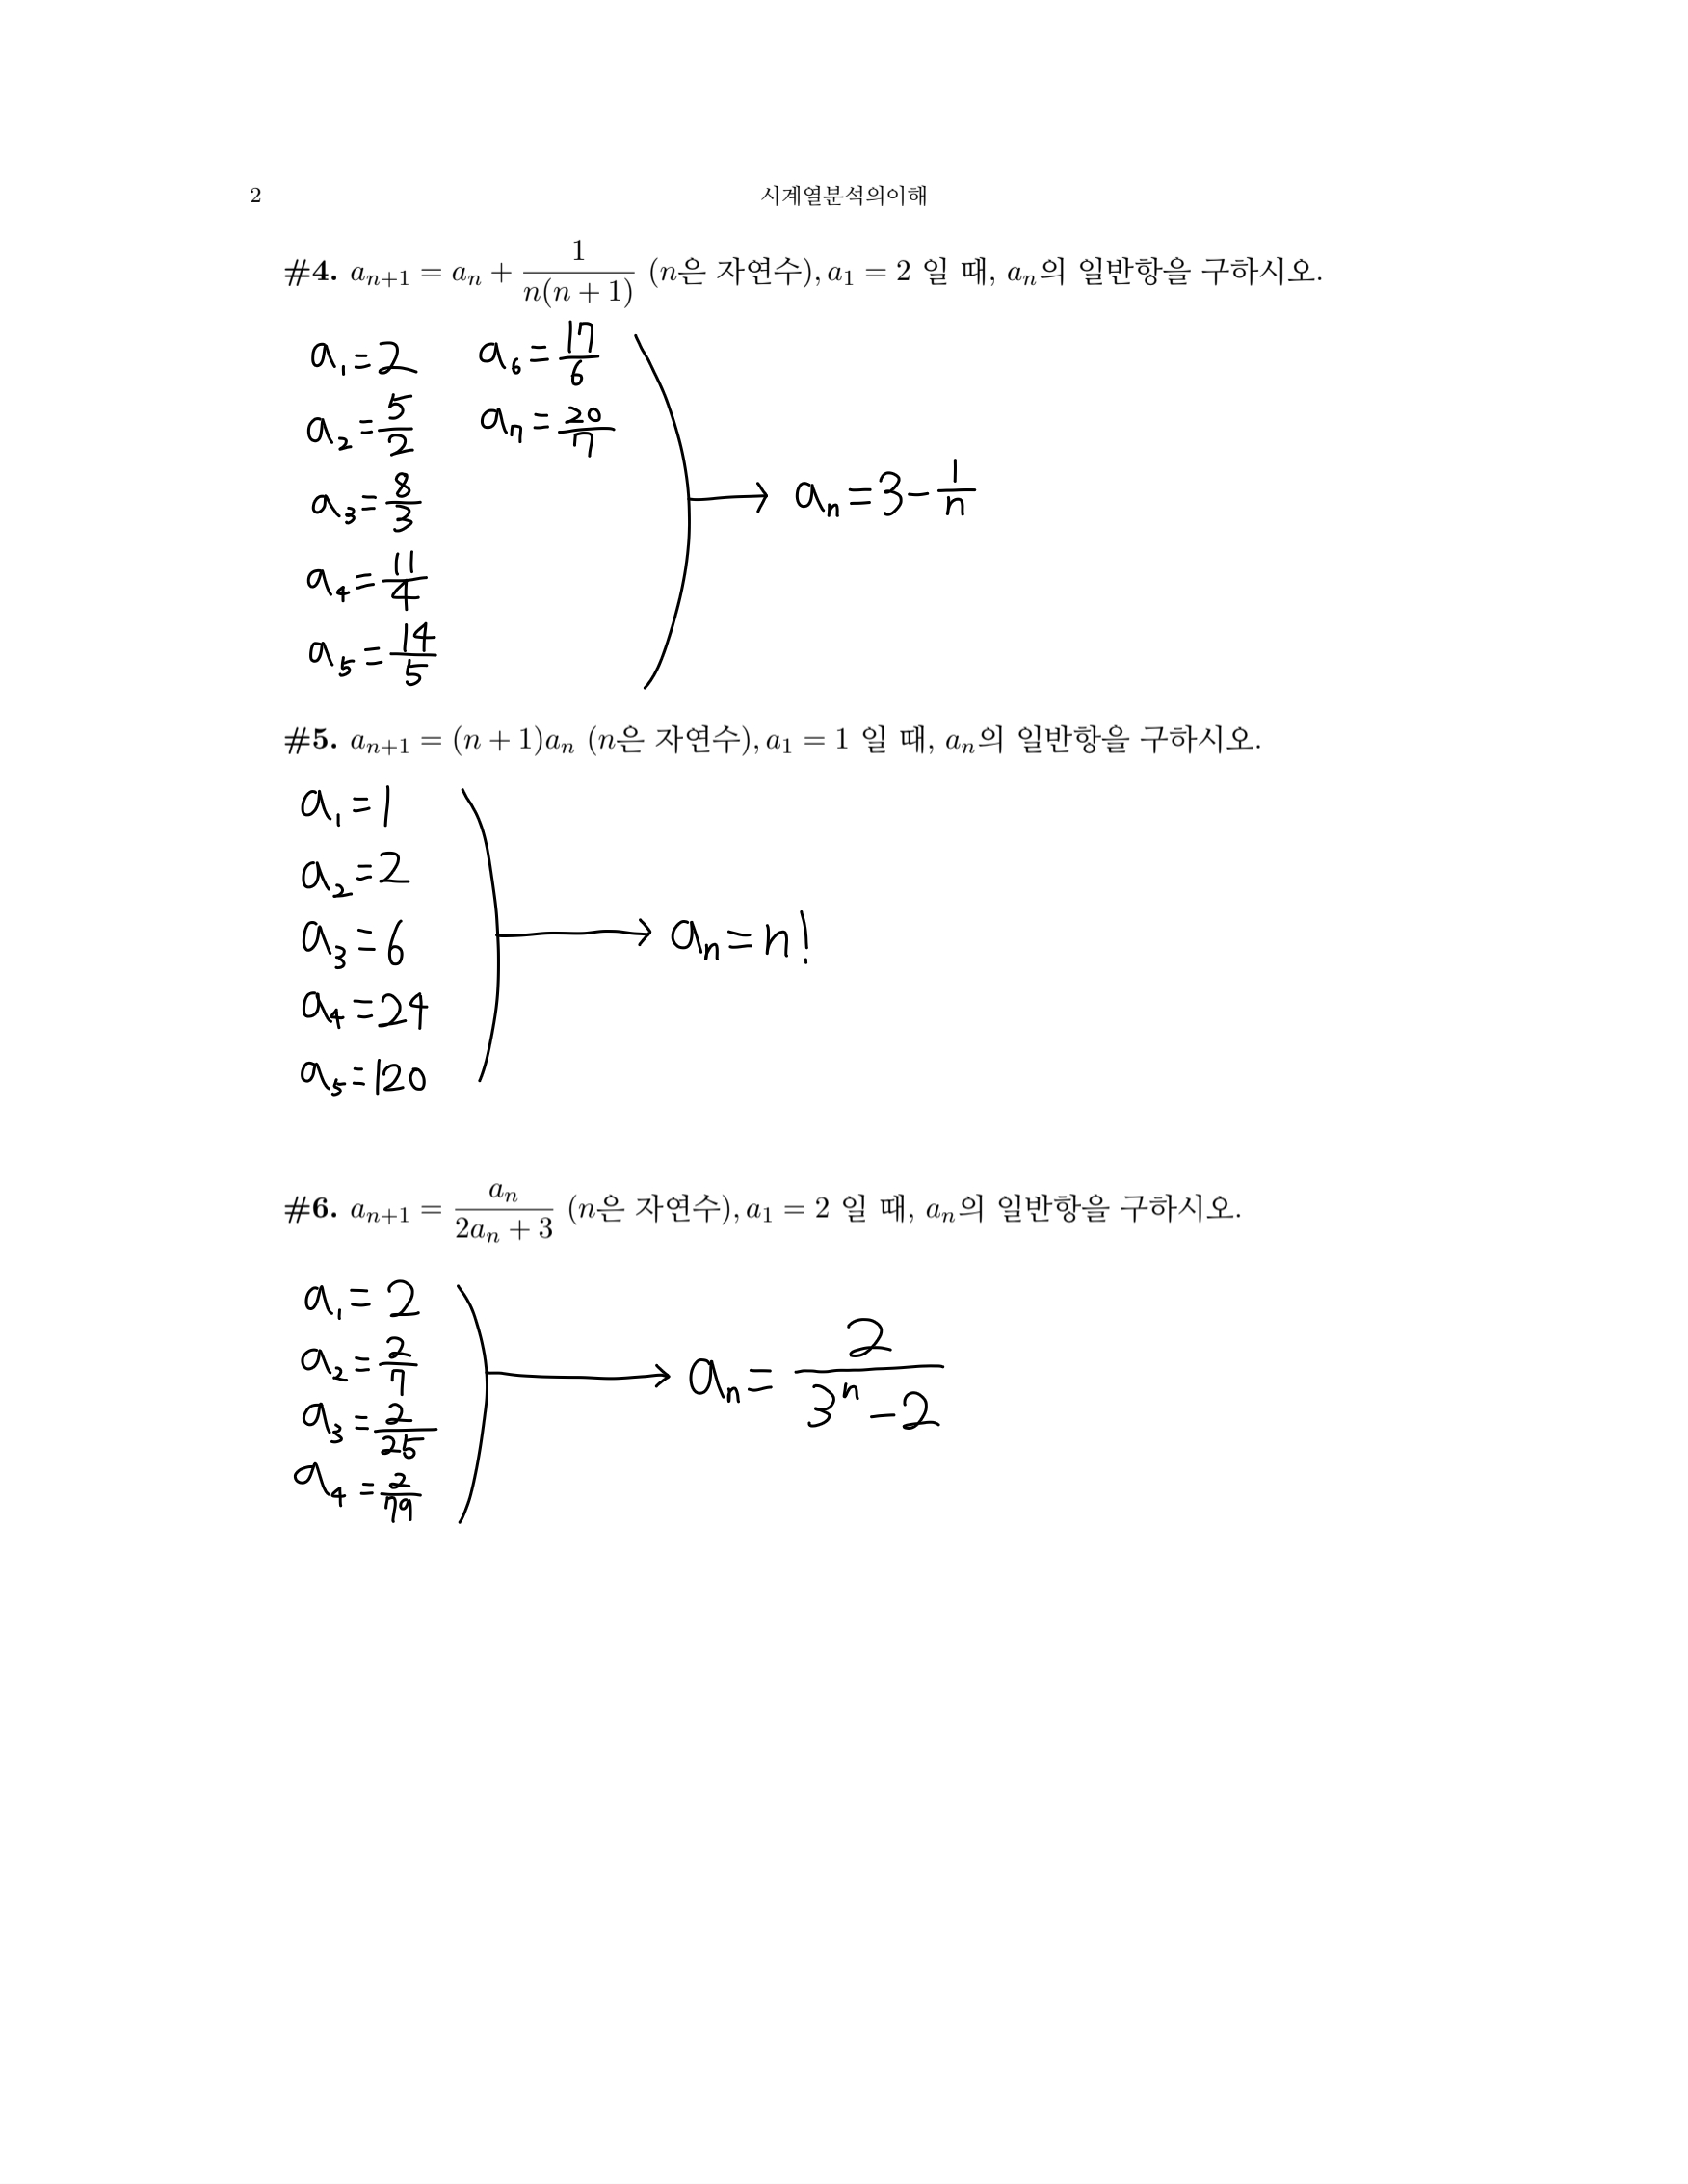 2 시계열분석의이해
#4. a_{n+1} = a_n + \frac{1}{n(n+1)} (n은 자연수), a_1 = 2 일 때, a_n의 일반항을 구하시오.
a_1 = 2
a_2 = \frac{5}{2}
a_3 = \frac{8}{3}
a_4 = \frac{11}{4}
a_5 = \frac{14}{5}
a_6 = \frac{17}{6}
a_7 = \frac{20}{7}
→ a_n = 3 - \frac{1}{n}
#5. a_{n+1} = (n+1)a_n (n은 자연수), a_1 = 1 일 때, a_n의 일반항을 구하시오.
a_1 = 1
a_2 = 2
a_3 = 6
a_4 = 24
a_5 = 120
→ a_n = n!
#6. a_{n+1} = \frac{a_n}{2a_n + 3} (n은 자연수), a_1 = 2 일 때, a_n의 일반항을 구하시오.
a_1 = 2
a_2 = \frac{2}{7}
a_3 = \frac{2}{25}
a_4 = \frac{2}{79}
→ a_n = \frac{2}{3^n - 2}